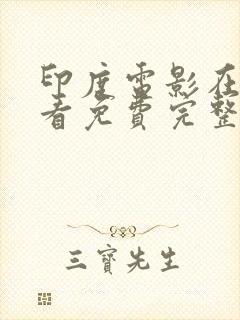 印度雷影在
看免费完整
三寶先生